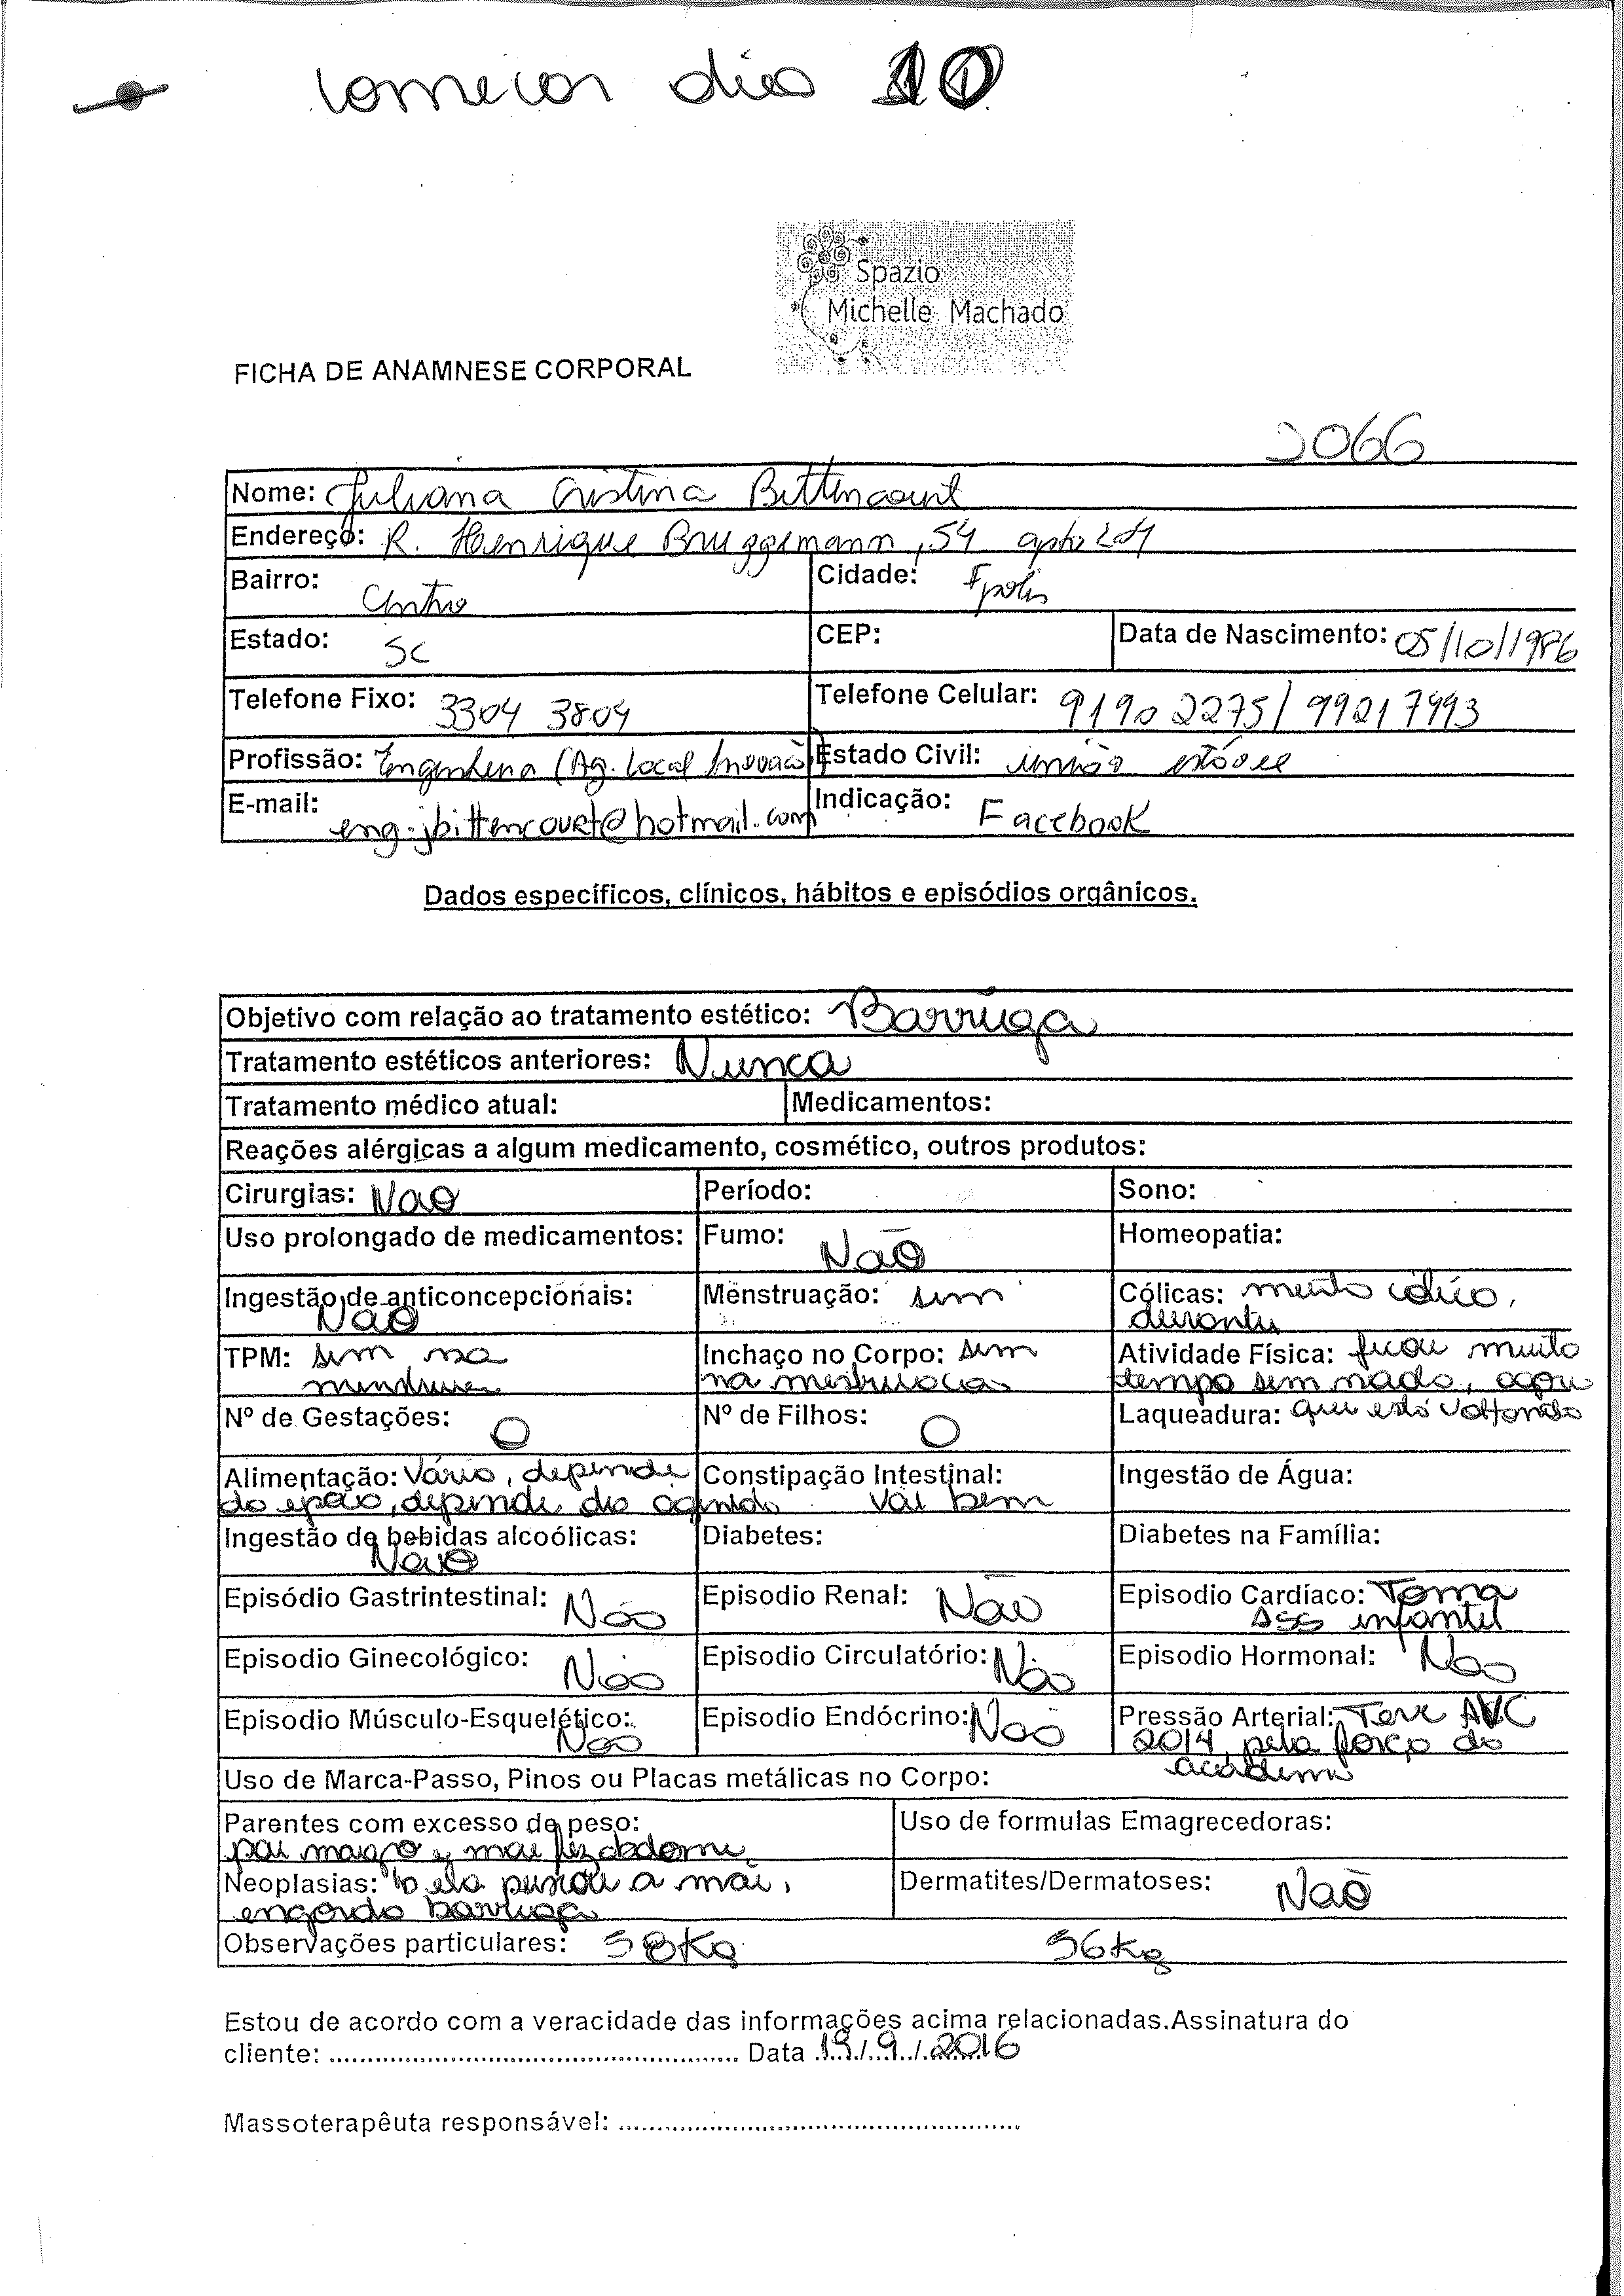 começar dia
Spazio
Michelle Machado
FICHA DE ANAMNESE CORPORAL
2066
Nome: Juliana Cristina Bittencourt
Endereço: R. Henrique Bruggemann, 54 apto 201
Bairro: Centro Cidade: Fpolis
Estado: SC CEP: Data de Nascimento: 05/10/1986
Telefone Fixo: 3304 3804 Telefone Celular: 9190 2275 / 9921 7993
Profissão: Engenheira (Ag. Local Inovação) Estado Civil: união estável
E-mail: eng.jbittencourt@hotmail.com Indicação: Facebook
Dados específicos, clínicos, hábitos e episódios orgânicos.
Objetivo com relação ao tratamento estético: Barriga
Tratamento estéticos anteriores: Nunca
Tratamento médico atual: Medicamentos:
Reações alérgicas a algum medicamento, cosmético, outros produtos:
Cirurgias: Nao Período: Sono:
Uso prolongado de medicamentos: Fumo: Não Homeopatia:
Ingestão de anticoncepcionais: Não Menstruação: sim Cólicas: muito cólica,
durante
TPM: sim na Inchaço no Corpo: sim Atividade Física: ficou muito
na tempo sem nada, agora
Nº de Gestações: 0 Nº de Filhos: 0 Laqueadura: que está voltando
Alimentação: Vário, depende Constipação Intestinal: Ingestão de Água:
do depende da vai bem
Ingestão de bebidas alcoólicas: Não Diabetes: Diabetes na Família:
Episódio Gastrintestinal: Não Episodio Renal: Não Episodio Cardíaco: Toma
ASS infantil
Episodio Ginecológico: Não Episodio Circulatório: Não Episodio Hormonal: Não
Episodio Músculo-Esquelético: Não Episodio Endócrino: Não Pressão Arterial: Teve AVC
2014, pela força da
academia
Uso de Marca-Passo, Pinos ou Placas metálicas no Corpo:
Parentes com excesso de peso: Uso de formulas Emagrecedoras:
pai magro e mae fez abdome
Neoplasias: ela puxou a mãe, Dermatites/Dermatoses: Não
engorda barriga
Observações particulares: 58Kg 56kg
Estou de acordo com a veracidade das informações acima relacionadas.Assinatura do
cliente: ........................................................ Data 19/9/2016
Massoterapêuta responsável: ........................................................